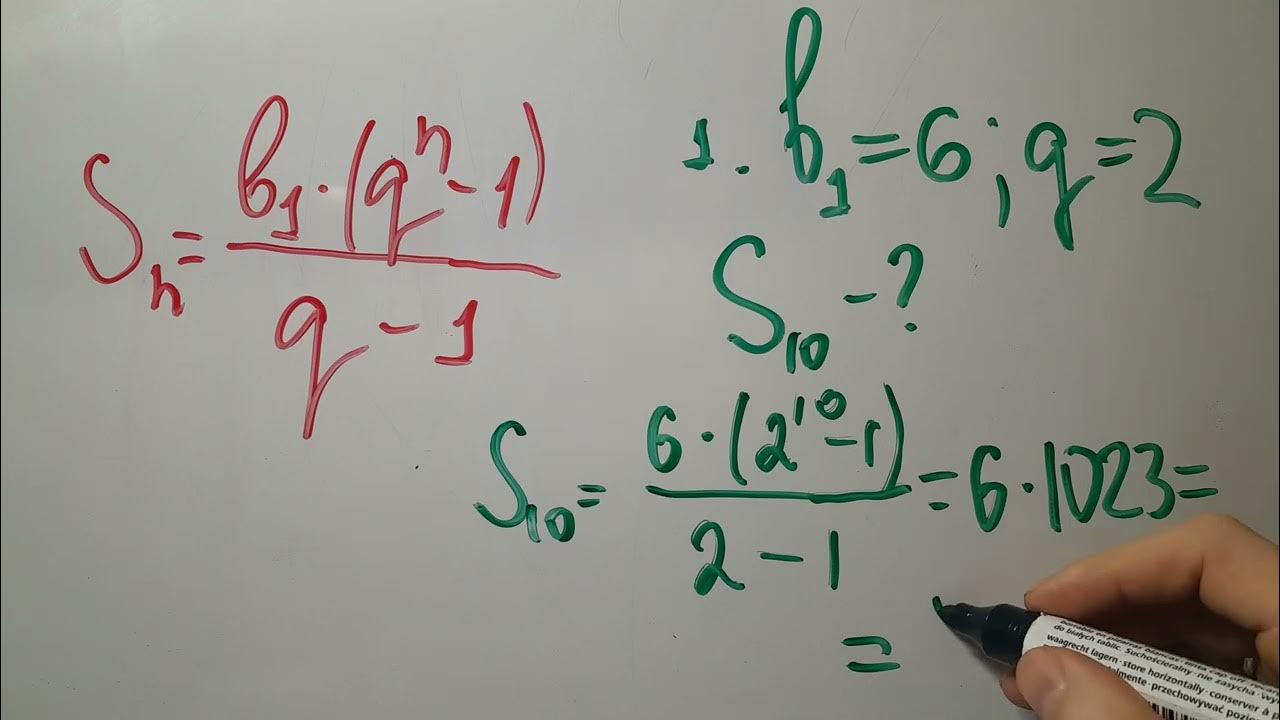 Sₙ = b₁·(qⁿ-1)
q-1
1. b₁=6; q=2
S₁₀-?
S₁₀= 6·(2¹⁰-1)
2-1
=6·1023=
=
do białych tablic. Suchościeralny · nie zasycha
waagrecht lagern · store horizontally · conserver à
przechowywać